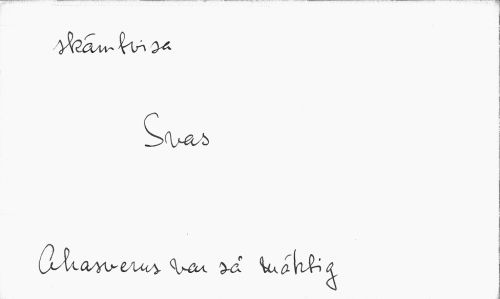 skämtvisa
Svas
Ahasverus var så mäktig